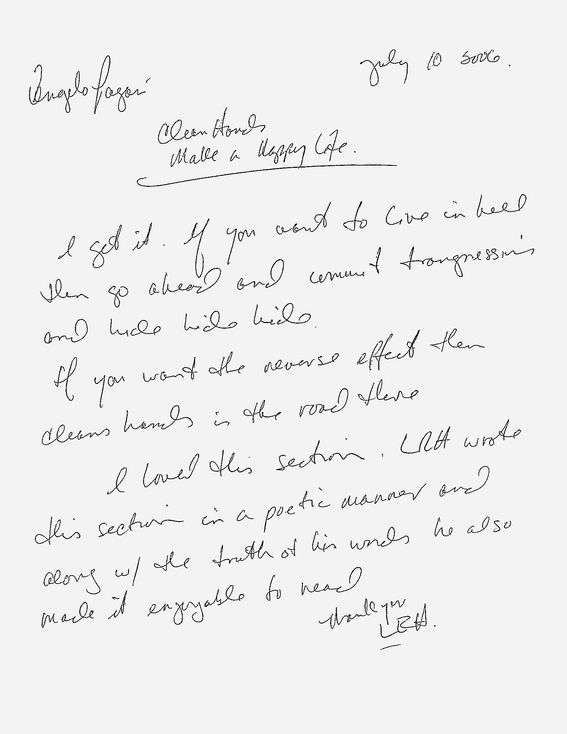 Angelo Pagan
July 10 2006.
Clean Hands
Make a Happy Life.
I get it. If you want to live in hell
then go ahead and commit trangressions
and hide hide hide.
If you want the reverse effect then
cleans hands is the road there
I loved this section. LRH wrote
this section in a poetic manner and
along w/ the truth of his words he also
made it enjoyable to read
thank you
LRH.